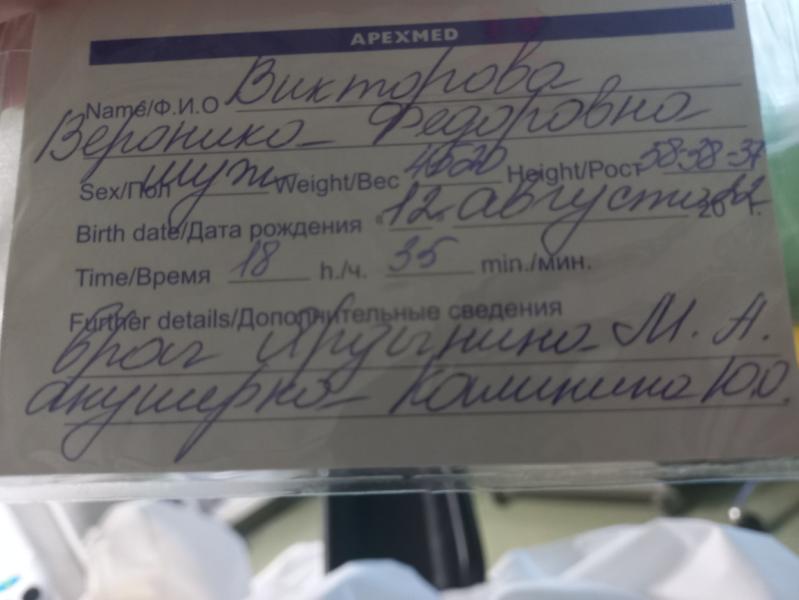 APEXMED
Name/Ф.И.О Викторова
Вероника Федоровна
Sex/Пол муж Weight/Вес 4520 Height/Рост 58-38-37
Birth date/Дата рождения "12" августа 2022 г.
Time/Время 18 h./ч. 35 min./мин.
Further details/Дополнительные сведения
Врач М. А.
акушерка Калинина Ю.О.